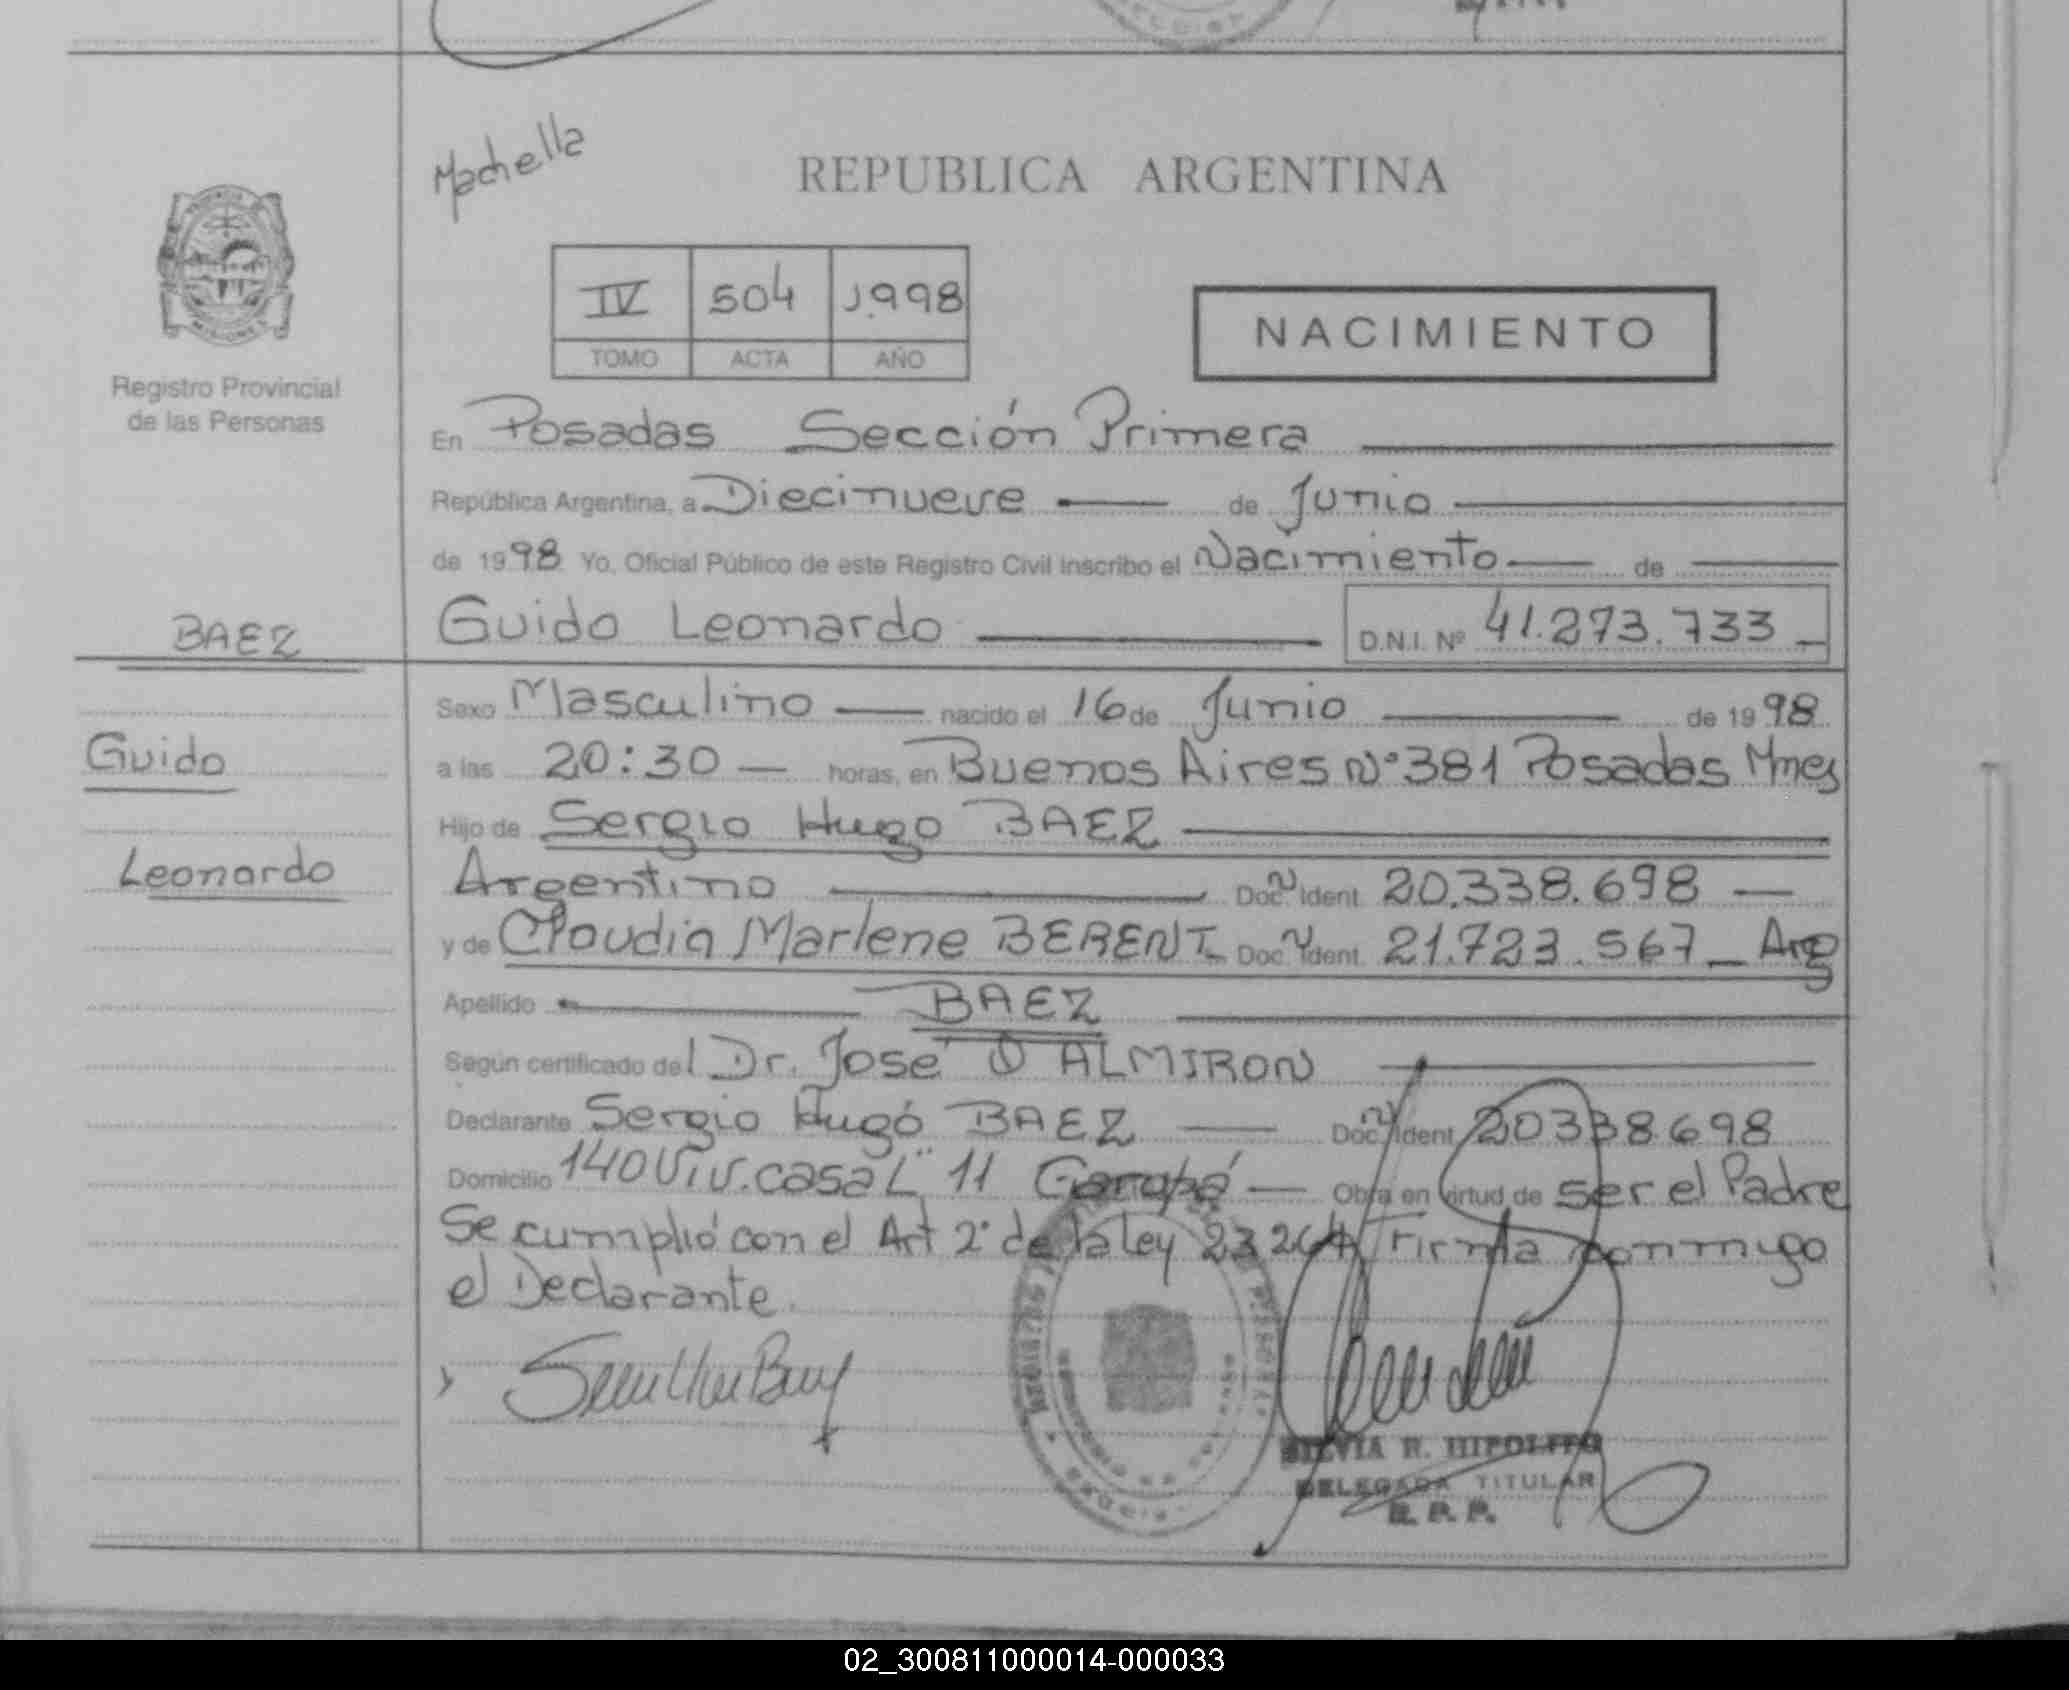 Machella
REPUBLICA ARGENTINA
IV 504 1.998
TOMO ACTA AÑO
NACIMIENTO
Registro Provincial
de las Personas
En Posadas Sección Primera
República Argentina, a Diecinueve de Junio
de 1998 Yo, Oficial Público de este Registro Civil Inscribo el Nacimiento de
BAEZ
Guido Leonardo D.N.I. Nº 41.273.733
Sexo Masculino nacido el 16 de Junio de 1998
Guido
a las 20:30 horas, en Buenos Aires Nº 381 Posadas Mnes
Hijo de Sergio Hugo BAEZ
Leonardo
Argentino Doc. Ident. 20.338.698
y de Claudia Marlene BERENT Doc. Ident. 21.723.567 Arg
Apellido BAEZ
Según certificado del Dr. José O ALMIRON
Declarante Sergio Hugo BAEZ Doc. Ident. 20338698
Domicilio 140 Viv. casa L 11 Garupá Obra en virtud de ser el Padre
Se cumplió con el Art 2º de la ley 23264 Firma conmigo
el Declarante.
SILVIA R. HIPOLITO
DELEGADA TITULAR
R. P. P.
02_300811000014-000033